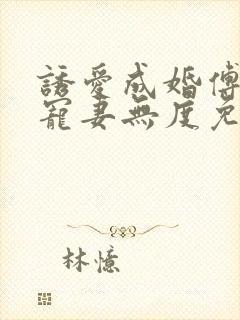 誘愛成婚傅
寵妻無度免
林憶